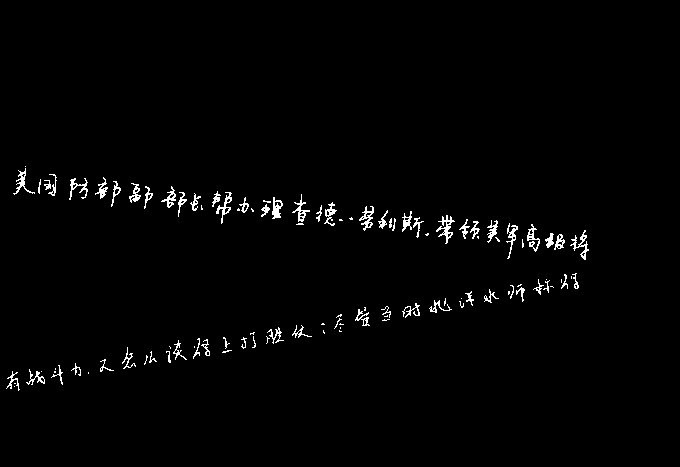 美国防部副部长帮办理查德·劳利斯,带领美军高级将
有战斗力,又怎么谈得上打胜仗;尽管当时北洋水师称得